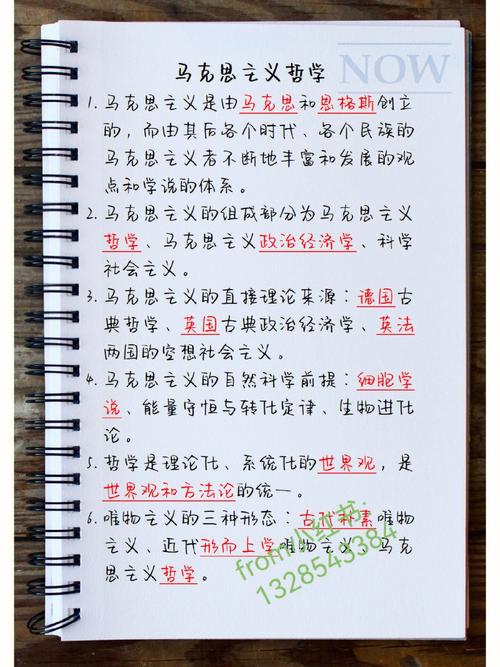 NOW
马克思主义哲学
1. 马克思主义是由马克思和恩格斯创立
的，而由其后各个时代、各个民族的
马克思主义者不断地丰富和发展的观
点和学说的体系。
2. 马克思主义的组成部分为马克思主义
哲学、马克思主义政治经济学、科学
社会主义。
3. 马克思主义的直接理论来源：德国古
典哲学、英国古典政治经济学、英法
两国的空想社会主义。
4. 马克思主义的自然科学前提：细胞学
说、能量守恒与转化定律、生物进化
论。
5. 哲学是理论化、系统化的世界观，是
世界观和方法论的统一。
6. 唯物主义的三种形态：古代朴素唯物
主义、近代形而上学唯物主义、马克
思主义哲学。
from小红书:
1328543384